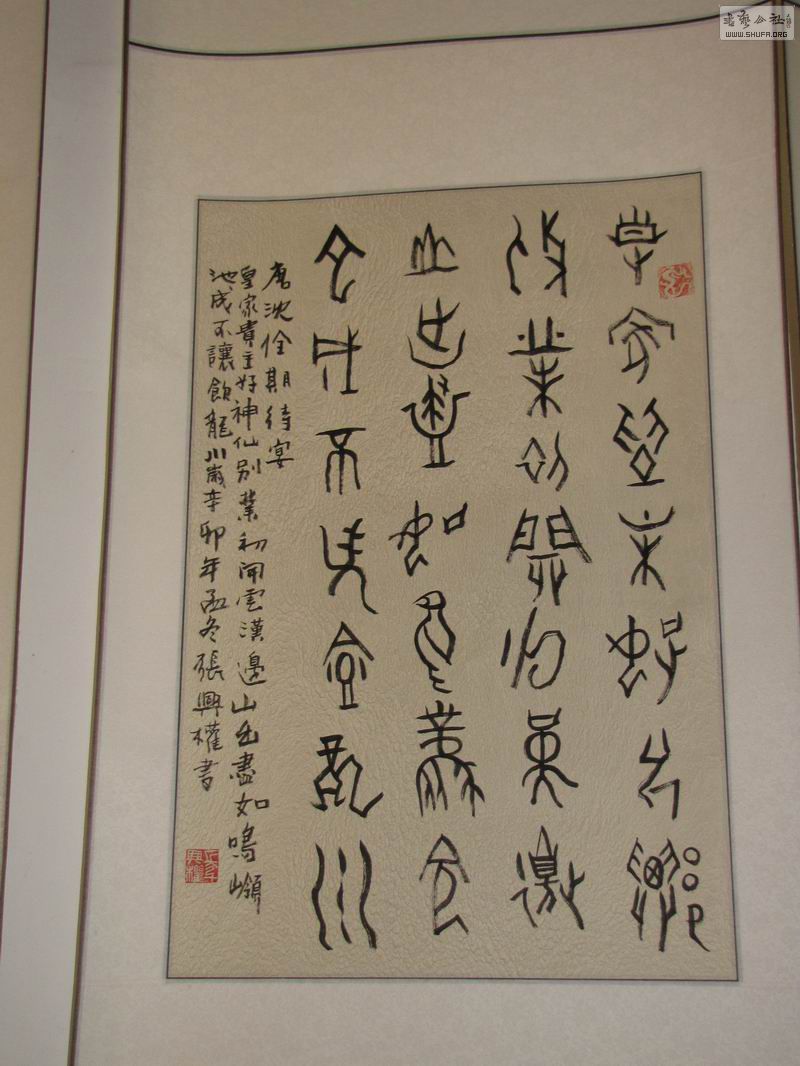 書藝公社
WWW.SHUFA.ORG
皇家貴主好神仙
別業初開雲漢邊
山出盡如鳴鳳嶺
池成不讓飲龍川
唐沈佺期待宴
皇家貴主好神仙別業初開雲漢邊山出盡如鳴嶺
池成不讓飲龍川歲辛卯年孟冬張興權書